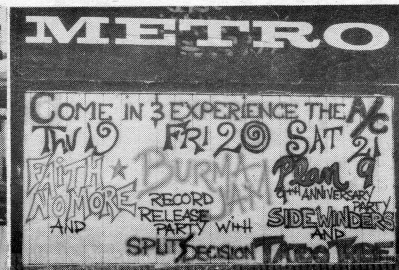 METRO
COME IN 3 EXPERIENCE THE A/C
THU 19 FRI 20 SAT 21
FAITH NO MORE AND
BURMA JAM
RECORD RELEASE PARTY WITH
SPLIT DECISION
Plan 9
9TH ANNIVERSARY PARTY
SIDEWINDERS AND
TATOO TRIBE